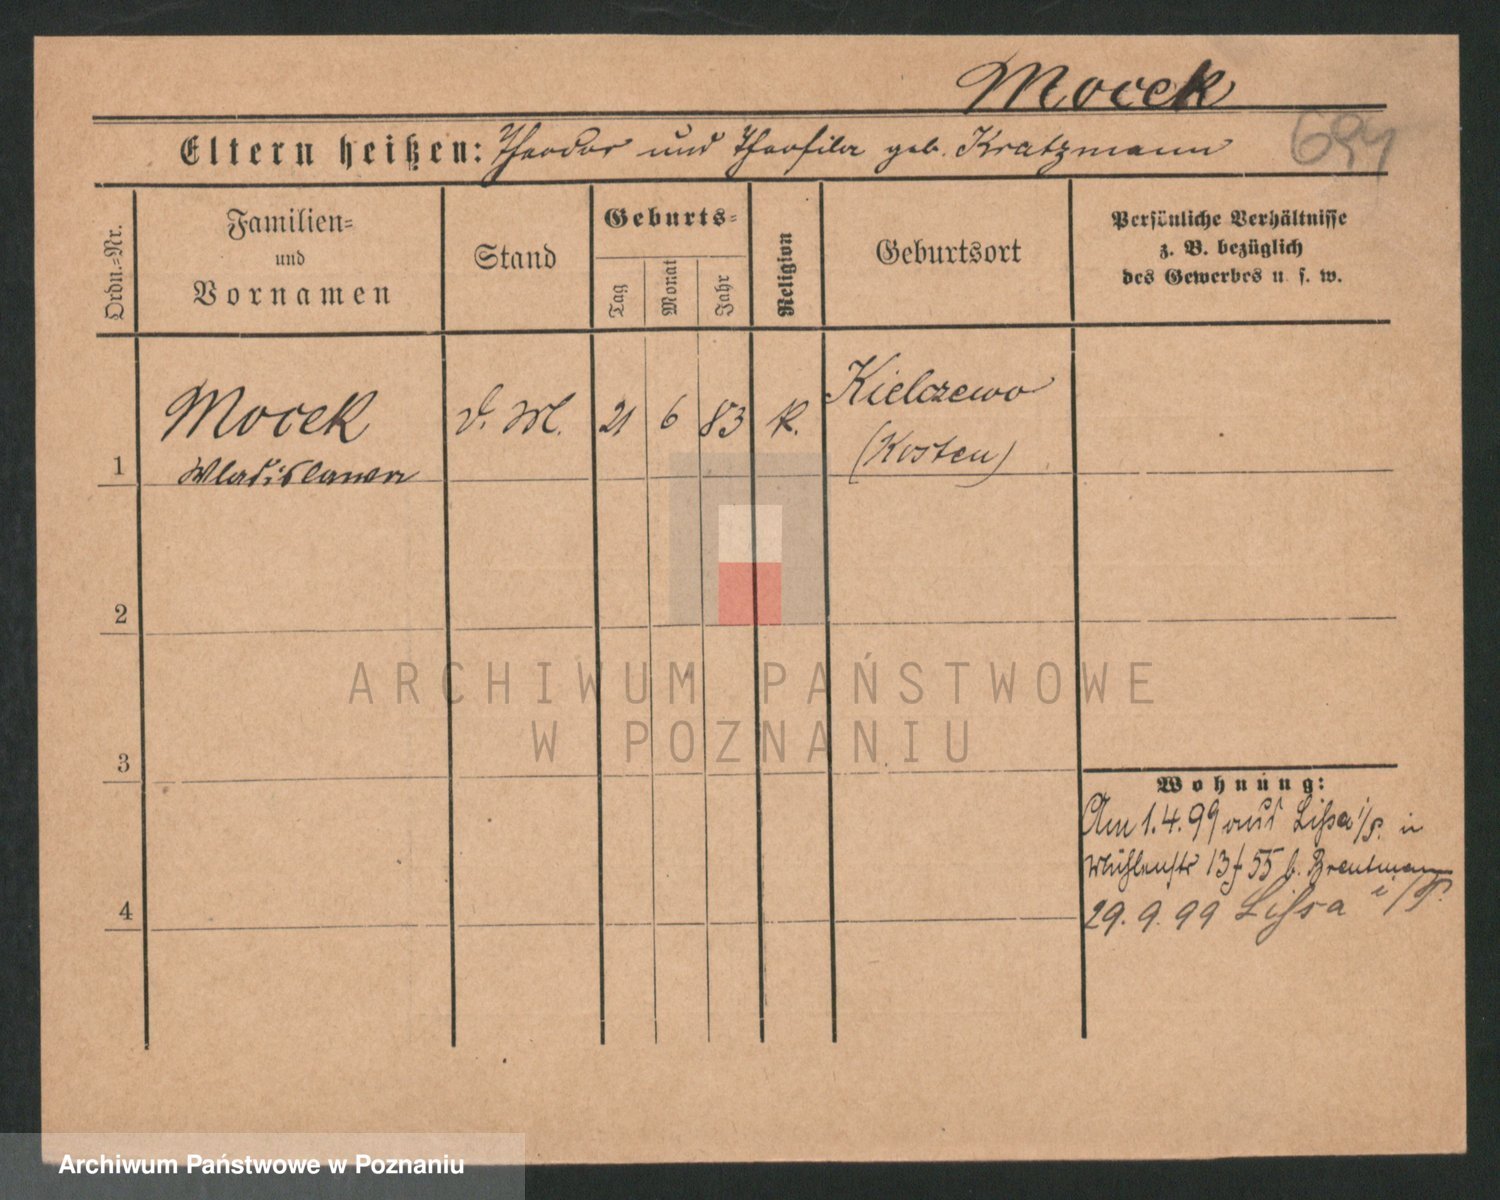 Mocek
694
Eltern heißen: Theodor und Theofila geb. Kratzmann
Ordn.=Nr.
Familien=
und
Vornamen
Stand
Geburts=
Tag
Monat
Jahr
Religion
Geburtsort
Persönliche Verhältnisse
z. B. bezüglich
des Gewerbes u. s. w.
1
Mocek
Wladislawa
d. M.
21
6
83
K.
Kielczewo
(Kosten)
2
3
4
Wohnung:
Am 1.4.99 aus Lissa i/P. in
Mühlenstr 13 55 b. Brautmann
29. 9. 99 Lissa i/P.
ARCHIWUM PAŃSTWOWE
W POZNANIU
Archiwum Państwowe w Poznaniu